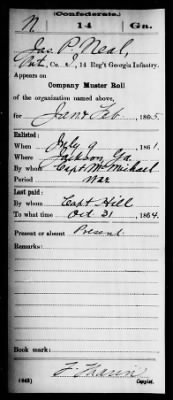 (Confederate.)
N 14 Ga.
Jas. P. Neal,
Pvt., Co. I, 14 Reg't Georgia Infantry.
Appears on
Company Muster Roll
of the organization named above,
for Jan & Feb, 1865.
Enlisted:
When July 9, 1861.
Where Jackson, Ga.
By whom Capt McMichael
Period War
Last paid:
By whom Capt Hill
To what time Oct 31, 1864.
Present or absent Present
Remarks:
Book mark:
(642)
Copyist.